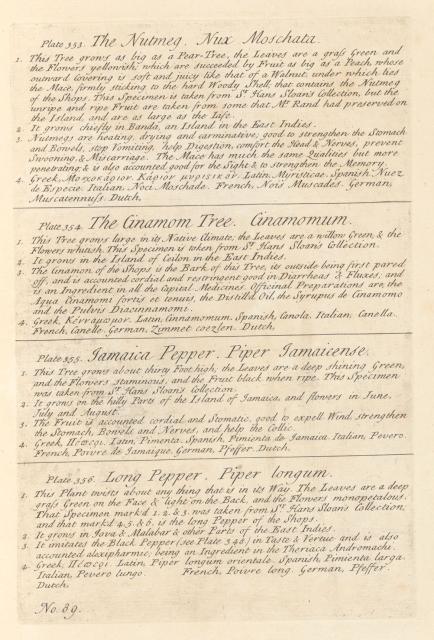 Plate 353. The Nutmeg. Nux Moschata.
1. This Tree grows as big as a Pear-Tree, the Leaves are a graſs Green and
the Flowers yellowiſh; which are succeeded by Fruit as big as a Peach, whose
outward Covering is soft and juicy like that of a Walnut, under which lies
the Mace, firmly sticking to the hard Woody Shell that contains the Nutmeg
of the Shops. This Specimen is taken from Sr. Hans Sloan's Collection, but the
unripe and ripe Fruit are taken from some that Mr. Rand had preserved on
the Island, and are as large as the Life.
2. It grows chiefly in Banda, an Island in the East Indies.
3. Nutmegs are heating, drying and carminative; good to strengthen the Stomach
and Bowels, stop Vomiting, help Digestion, comfort the Head & Nerves, prevent
Swooning, & Miscarriage. The Mace has much the same Qualities but more
penetrating; & is also accounted good for the Sight & to strengthen the Memory.
4. Greek, Latin, Myristicæ. Spanish, Nuez
de Especie. Italian, Noci Moschade. French, Nois Muscades. German,
Muscatennuſs. Dutch.
Plate 354. The Cinamom Tree. Cinamomum.
1. This Tree grows large in its Native Climate; the Leaves are a willow Green, & the
Flowers whitish. This Specimen is taken from Sr. Hans Sloan's Collection.
2. It grows in the Island of Ceilon in the East Indies.
3. The Cinamon of the Shops is the Bark of this Tree, its outside being first pared
off, and is accounted cordial and restringent, good in Diarrheas & Fluxes, and
is an Ingredient in all the Capital Medicines. Officinal Preparations are, the
Aqua Cinamomi fortis et tenuis, the Distill'd Oil, the Syrupus de Cinamomo
and the Pulvis Diacinnamomi.
4. Greek, Latin, Cinnamomum. Spanish, Canola. Italian, Canella.
French, Canelle. German, Zimmet coezlen. Dutch.
Plate 355. Jamaica Pepper. Piper Jamaicense.
1. This Tree grows about thirty Foot high; the Leaves are a deep shining Green,
and the Flowers staminous, and the Fruit black when ripe. This Specimen
was taken from Sr. Hans Sloan's Collection.
2. It grows on the hilly Parts of the Island of Jamaica, and flowers in June,
July and August.
3. The Fruit is accounted cordial and Stomatic, good to expell Wind, strengthen
the Stomach, Bowels and Nerves, and help the Collic.
4. Greek, Latin, Pimenta. Spanish, Pimienta de Jamaica. Italian, Pevero.
French, Poivre de Jamaique. German, Pfeffer. Dutch.
Plate 356. Long Pepper. Piper longum.
1. This Plant twists about any thing that is in its Way. The Leaves are a deep
graſs Green on the Face & light on the Back, and the Flowers monopetalous.
That Specimen mark'd 1. 2. & 3. was taken from Sr. Hans Sloan's Collection,
and that mark'd 4. 5. & 6. is the long Pepper of the Shops.
2. It grows in Java & Malabar & other Parts of the East Indies.
3. It imitates the Black Pepper (see Plate 348) in Taste & Vertue and is also
accounted alexipharmic; being an Ingredient in the Theriaca Andromachi.
4. Greek, Latin, Piper longum orientale. Spanish, Pimienta larga.
Italian, Pevero lungo. French, Poivre long. German, Pfeffer.
Dutch.
No. 89.